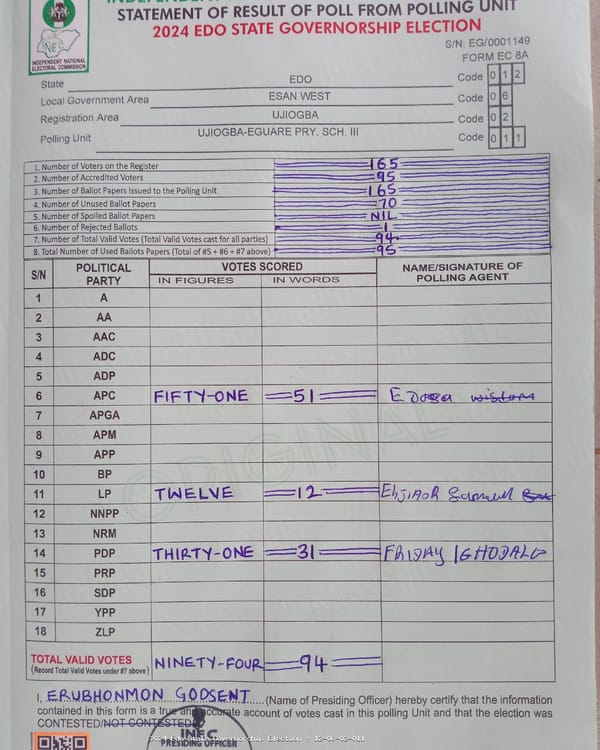 STATEMENT OF RESULT OF POLL FROM POLLING UNIT
2024 EDO STATE GOVERNORSHIP ELECTION
INEC
INDEPENDENT NATIONAL
ELECTORAL COMMISSION
S/N: EG/0001149
FORM EC 8A
State EDO Code 0 1 2
Local Government Area ESAN WEST Code 0 6
Registration Area UJIOGBA Code 0 2
Polling Unit UJIOGBA-EGUARE PRY. SCH. III Code 0 1 1
1. Number of Voters on the Register 165
2. Number of Accredited Voters 95
3. Number of Ballot Papers Issued to the Polling Unit 165
4. Number of Unused Ballot Papers 70
5. Number of Spoiled Ballot Papers NIL
6. Number of Rejected Ballots 1
7. Number of Total Valid Votes (Total Valid Votes cast for all parties) 94
8. Total Number of Used Ballots Papers (Total of #5 + #6 + #7 above) 95
S/N POLITICAL PARTY VOTES SCORED NAME/SIGNATURE OF POLLING AGENT
IN FIGURES IN WORDS
1 A
2 AA
3 AAC
4 ADC
5 ADP
6 APC FIFTY-ONE 51 wisdom
7 APGA
8 APM
9 APP
10 BP
11 LP TWELVE 12 Samuel
12 NNPP
13 NRM
14 PDP THIRTY-ONE 31 FRIDAY IGHODALO
15 PRP
16 SDP
17 YPP
18 ZLP
ORIGINAL
TOTAL VALID VOTES
(Record Total Valid Votes under #7 above) NINETY-FOUR 94
I, ERUBHONMON GODSENT (Name of Presiding Officer) hereby certify that the information
contained in this form is a true and accurate account of votes cast in this polling Unit and that the election was
CONTESTED/NOT CONTESTED
INEC
PRESIDING OFFICER
2024 Edo State Governorship Election : 12-06-02-011